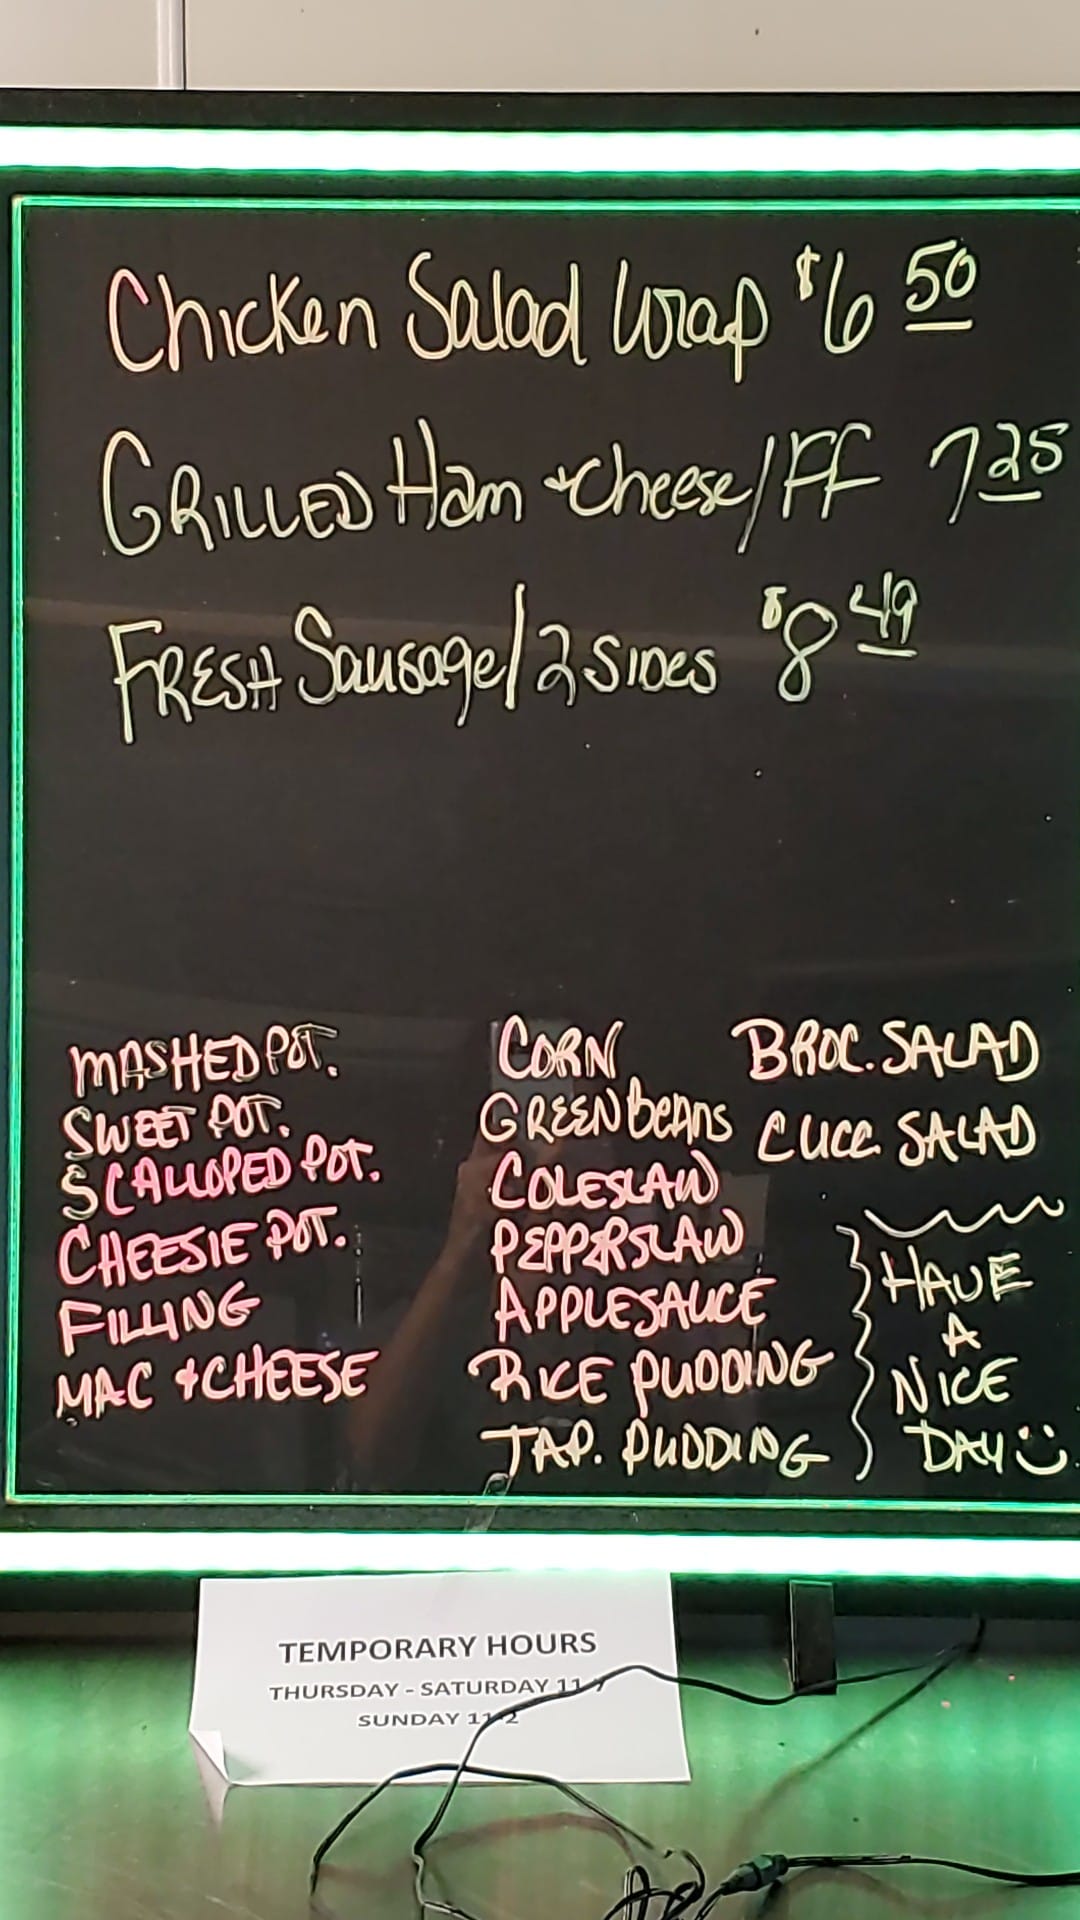 Chicken Salad Wrap $6 50
GRILLED Ham + Cheese/FF 7 25
FRESH Sausage/2 SIDES $8 49
MASHED POT.
SWEET POT.
SCALLOPED POT.
CHEESIE POT.
FILLING
MAC + CHEESE
CORN
GREEN BEANS
COLESLAW
PEPPERSLAW
APPLESAUCE
RICE PUDDING
TAP. PUDDING
BROC. SALAD
CUCC SALAD
HAVE
A
NICE
DAY
TEMPORARY HOURS
THURSDAY - SATURDAY 11-7
SUNDAY 11-2